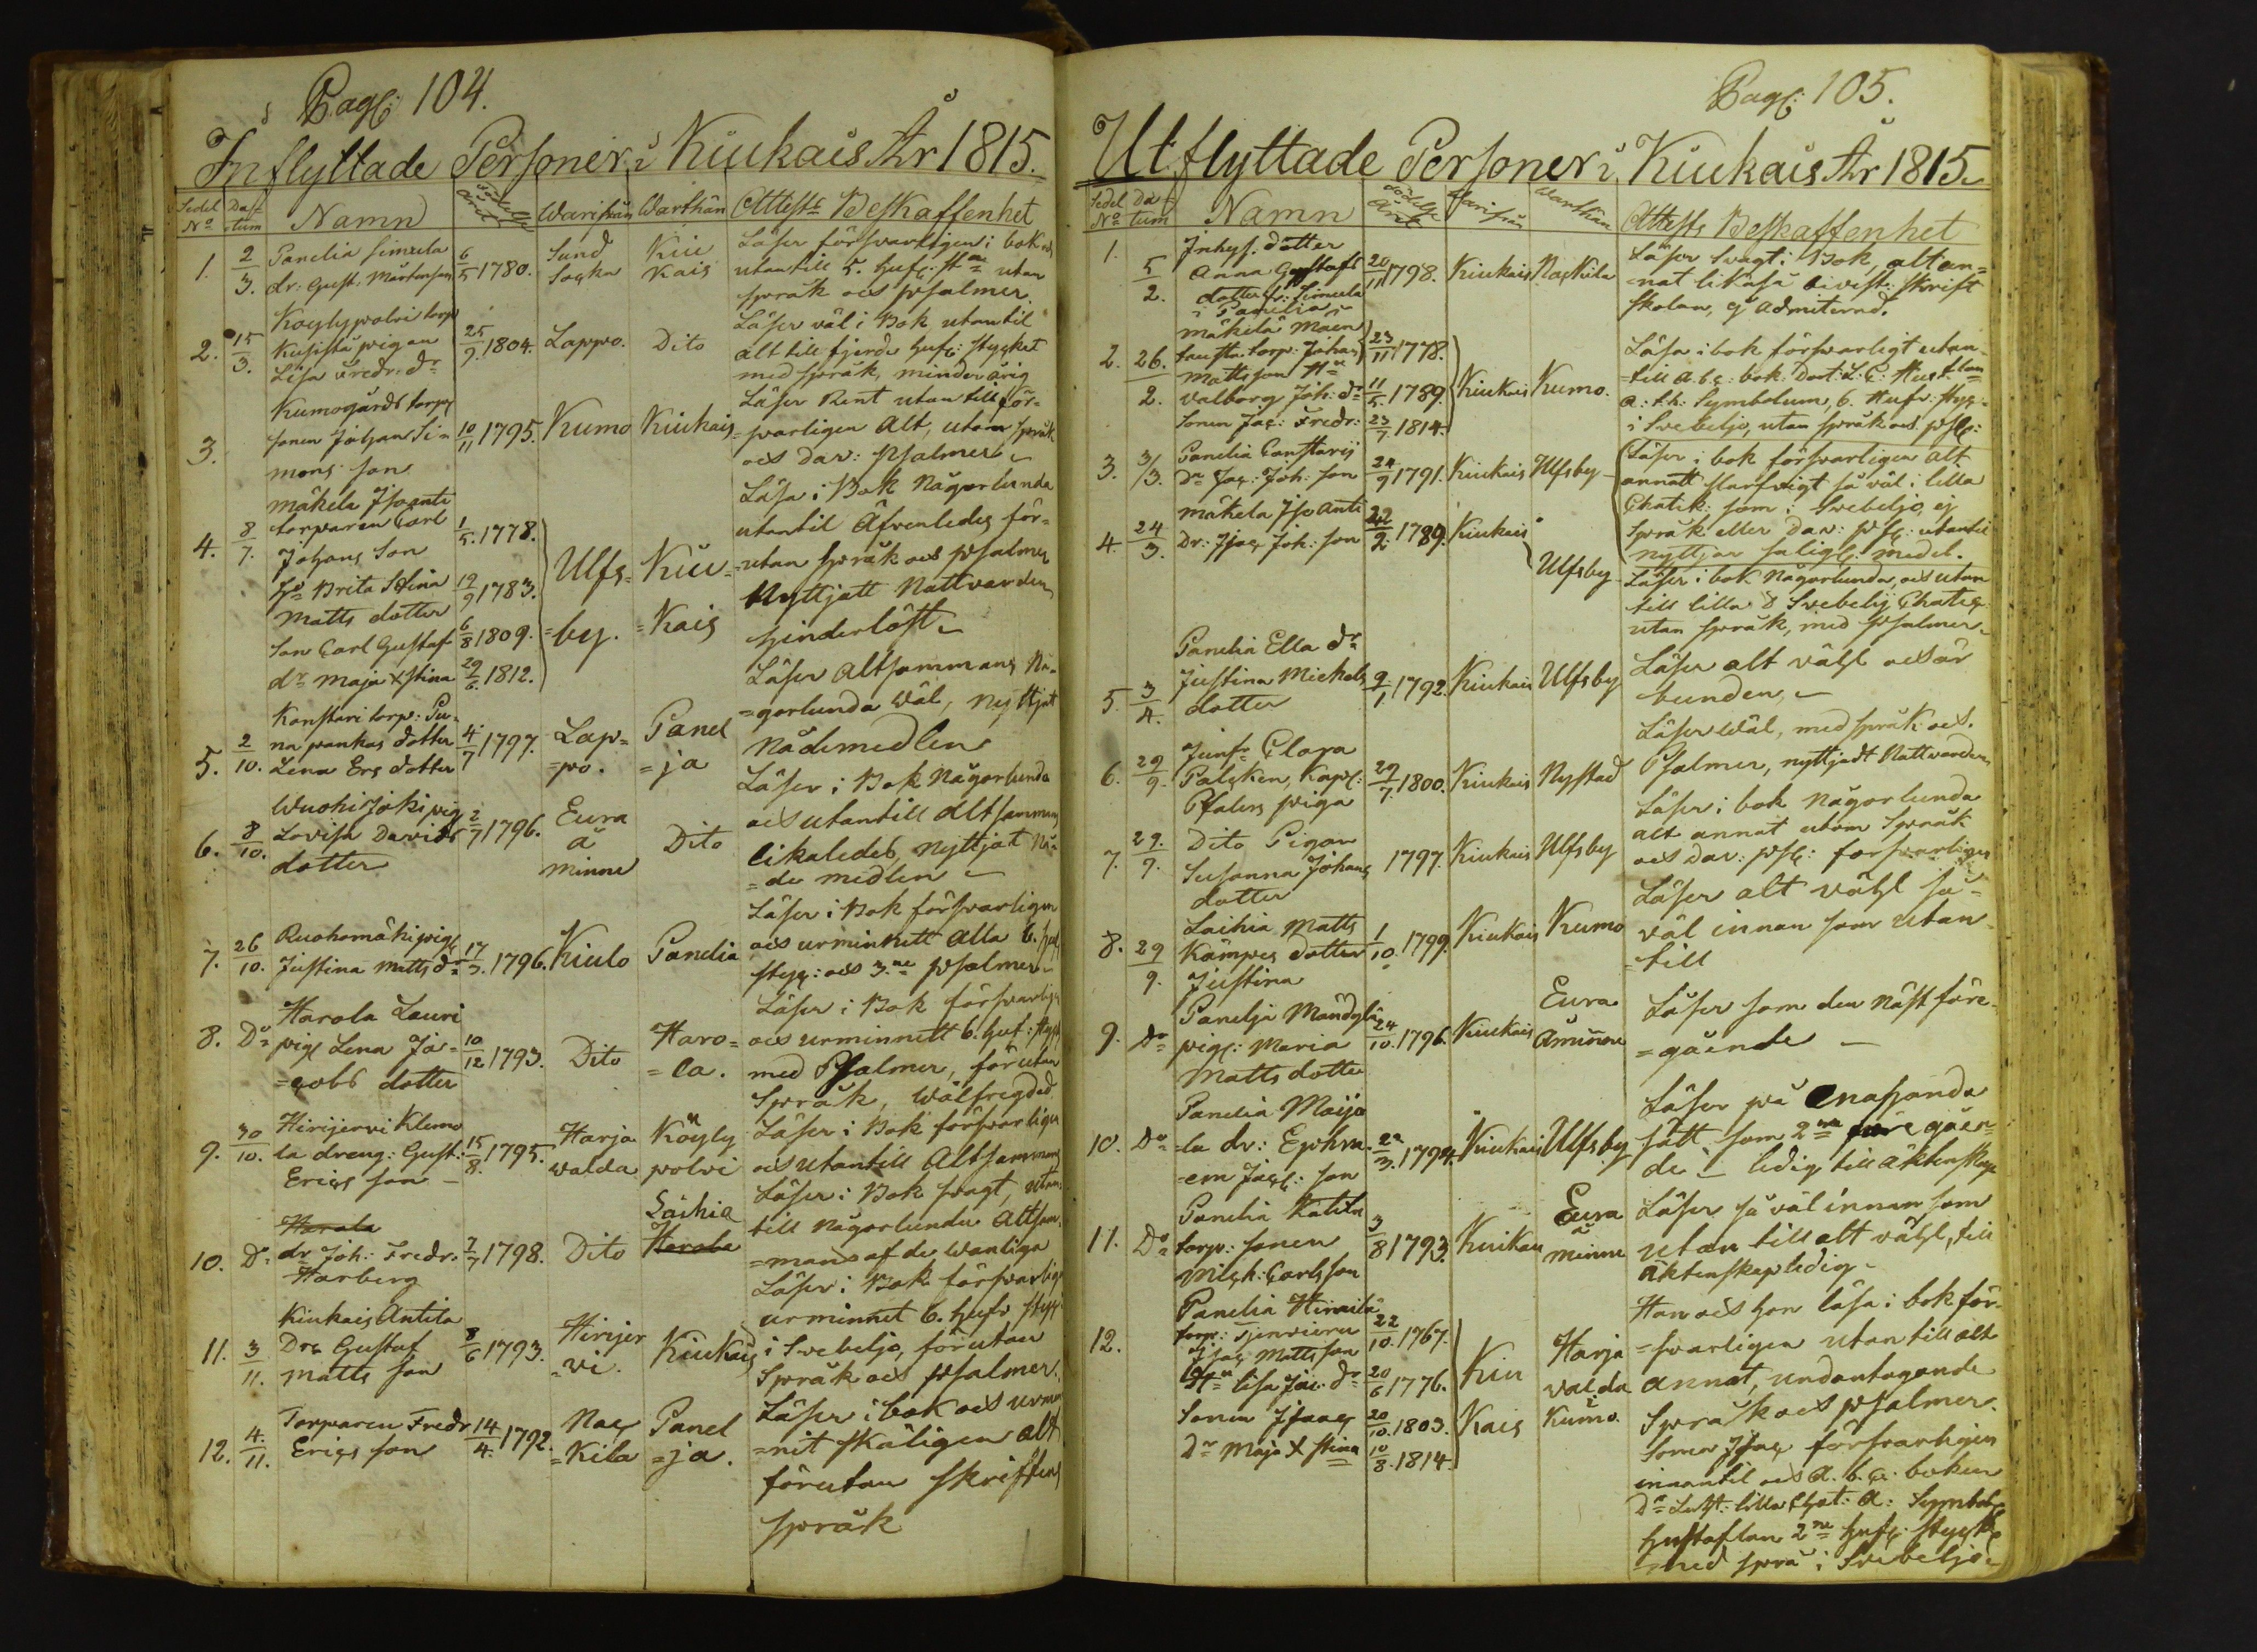 Pag: 104.
Inflyttade Personer i Kiukais År 1815.
Sedel No
Datum
Namn
Födelse Året
Warifrån
Warthän
Attests Beskaffenhet
1. 2/3. Panelia Simula
dr: Gust: Mårtensson
6/5 1780.
Sund
Socken
Kiu
Kais
Läser försvarligen i bok och
utantill 5. huf: st utan
språk och psalmer.
2. 15/3. Köylypolvi torp
Kusistu pigan
Lisa Fredr: dr
25/9. 1804.
Lappo.
Dito
Läser väl i Bok utantil
alt till fjerde huf: stycket
med språk, minderårig
3. Kumogårds torp
sonen Johan Si=
mons son
10/11 1795.
Kumo
Kiukais
Läser Rent utantill för=
svarligen Alt, utom språk
och Dav: Psalmer
4. 8/7. Mäkelä Iso anti
torparen Carl
Johans Son
1/5. 1778.
Hu Brita Stina
Matts dotter
19/9 1783.
Son Carl Gustaf
6/8 1809.
dr Maja Xstina
29/6. 1812.
Ulfs=
=by.
Kiu=
=Kais
Läsa i Bok Någorlunda
utantil Äfvenledes för=
=utan språk och psalmer
Nyttjatt Nattvarden
hinderlöst
5. 2/10. Konstari torp: Pu=
na pankas dotter
Lena Ers dotter
4/7 1797.
Lap=
=po.
Panel
=ja
Läser Altsammans Nå=
=gorlunda Wäl, Nyttjat
Nådemedlen
6. 8/10. Wuohijoki pig
Lovisa Davids
dotter
2/7 1796.
Eura
å
minne
Dito
Läser i Bok Någorlunda
och utantill altsammans
likaledes, Nyttjat Nå=
=de medlen
7. 26/10. Ruohomäki pig
Justina Matts dr
17/3. 1796.
Kiulo
Panelia
Läser i Bok försvarligen
och urminnett Alla 6. huf
styc: och 3.ne psalmer
8. Do Harola Lauri
pig Lena Ja=
=cobs dotter
10/12 1793.
Dito
Haro=
=la.
Läser i Bok försvarligen
och urminnett 6. huf: styck
med Psalmer, förutan
Språk, Wälfregdad
9. 30/10. Hinjervi Klemo
la dreng: Gust:
Erics son
15/8. 1795.
Harja
walda
Köyly
polvi
Läser i Bok försvarligen
och utantill Altsammans
10. Do Harola
dr Joh: Fredr:
Harberg
7/7 1798.
Dito
Laihia
Harola
Läser i Bok svagt, utan=
till Någorlunda Altsam=
=mans af de Wanliga
11. 3/11. Kiukais Antila
Dr Gustaf
Matts son
8/6 1793.
Hinjer
=vi.
Kiukais
Läser i Bok försvarligt
urminnet 6. hufv styck
i Svebeljo, förutan
Språk och psalmer.
12. 4./11. Torparen Fredr
Erics son
14/4. 1792.
Nac
=Kila
Panel
=ja.
Läser i bok och urmin
=nit skäligen alt
förutan skriftens
språk
Pag: 105.
Utflyttade Personer i Kiukais År 1815.
Sedel No
Datum
Namn
Födelse Året
Warifrån
Warthän
Attests Beskaffenhet
1. 5/2. Inhys. dotter
Anna Gustafs
dotter fr: Simula
i Panelia
20/11 1798.
Kiukais
Nackila
Läser Svagt i Bok, alt an=
nat likaså bivist: skrift
skolan, ej admiterad.
2. 26./2. Mäkelä Maen
tausta torp: Johan
Mattsson
23/11 1778.
Hu
Valborg Joh: dr
11/5. 1789.
Sonen Jac: Fredr:
23/7 1814.
Kiukais
Kumo.
Läsa i bok försvarligt utan=
=till a.b.c: bok. Doct: L: C: Hustaflan
A: th: Symbolum, 6. Hufv: styc:
i Svebeljo, utan språk och psl:
3. 3/3. Panelia Constarij
Dr Jac: Joh: son
24/9 1791.
Kiukais
Ulfsby
Läser i bok försvarligen alt
annatt slarfvigt så väl i lilla
Chatik: som i Svebeljo, ej
Språk eller Dav: ps: utantil
nyttjar salig: medel.
4. 24/3. Mäkelä Iso Anti
Dr: Isac Joh: son
22/2 1789.
Kiukais
Ulfsby
Läser i bok Någorlunda, och utan
till lilla & Svebelij Chates
utan språk, med psalmer
5. 3/4. Panelia Ella dr
Justina Michels
dotter
9/1 1792.
Kiukais
Ulfsby
Läser alt väll och är
bunden,
6. 29/9. Junfr Clara
Palsken, Kapl:
Pfalers piga
29/7. 1800.
Kiukais
Nystad
Läser Wäl, med språk och
Psalmer, nyttjadt Nattvarden
7. 29./9. Dito Pigan
Susanna Johans
dotter
1797.
Kiukais
Ulfsby
Läser i bok någorlunda
alt annat utom Språk
och dav: ps: försvarligen
8. 29/9. Laihia Matts
Kämpes dotter
Justina
1/10. 1799.
Kiukais
Kumo
Läser alt väll så=
väl innan som utan=
till
9. Do Panelja Mändylä
pig: Maria
Matts dotter
24/10. 1796.
Kiukais
Eura
Åminne
Läser som den näst före=
=gående
10. Do Panelia Maija
=la dr: Ephra=
=em Jac: son
22/3. 1794.
Kiukais
Ulfsby
Läser på enahanda
sätt som 2ne föregåen
de ledig till äktenskap
11. Do Panelia Katila
torp: sonen
Mich: Carlsson
3/8 1793.
Kiukais
Eura
å
minne
Läser så väl innan som
utan till alt väll, till
äktenskap ledig
12. Panelia Hirmilä
torp: Tjenviern
Isac Matts son
22/10. 1767.
Hu Lisa Jac: dr
20/6 1776.
Sonen Isaac
20/10. 1803.
Dr Maja Xstina
10/8. 1814.
Kiu
Kais
Harja
walda
i
Kumo.
Han och hon läsa i bok för=
=svarligen utan till alt
annat, undantagande
Språk och psalmer.
Sonen Isac försvarligen
innantil och A. b. c: boken
Do Luth: lilla Chat: A: Symbol
hustaflan 2ne hufs: styck
=med språ i Svebeljo